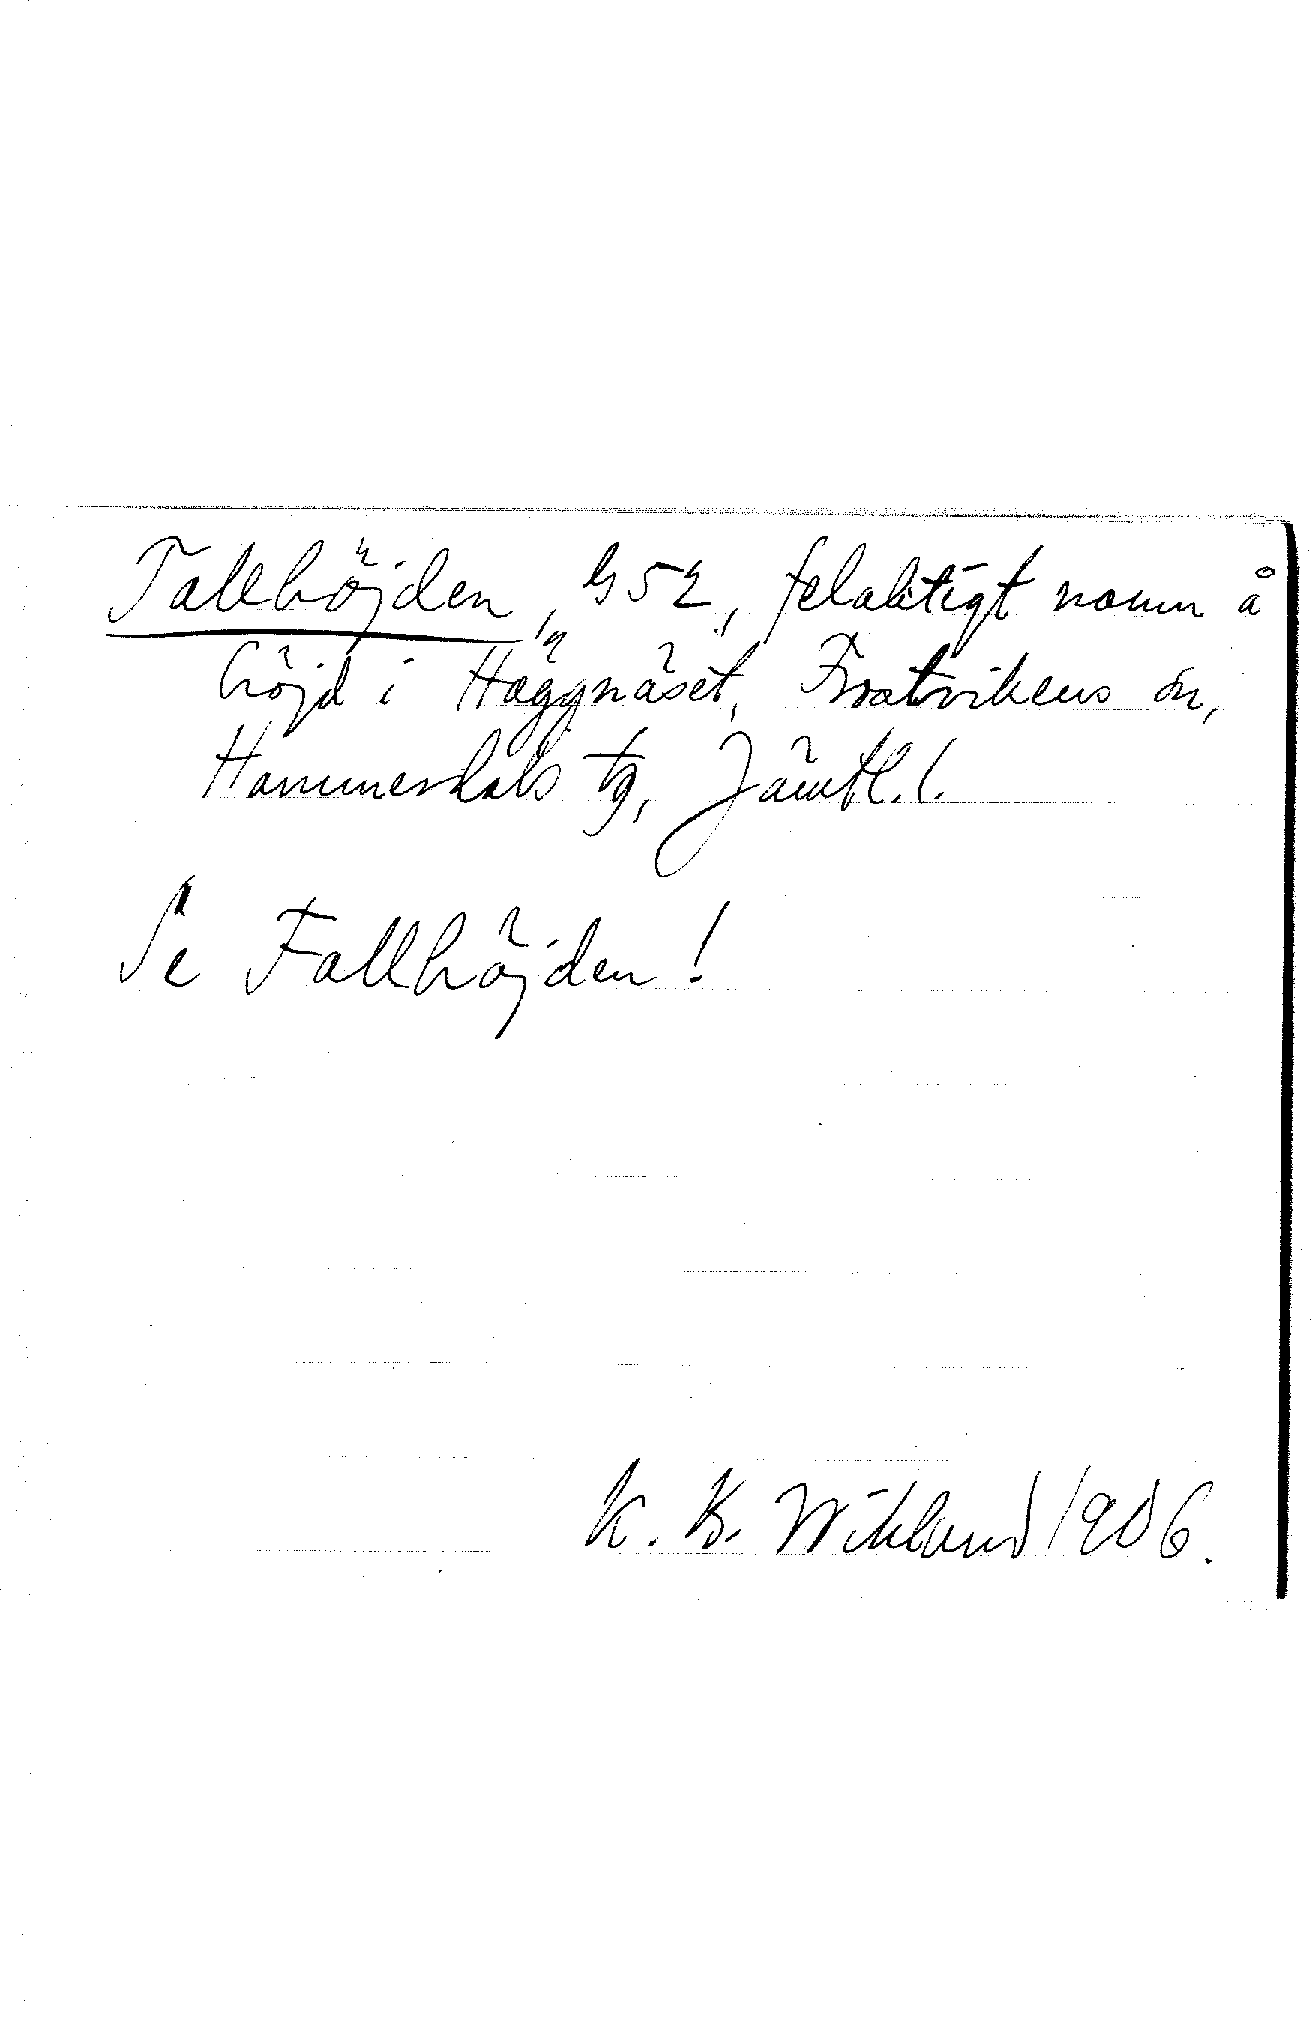 Tallhöjden, G 52, felaktigt namn å
höjd i Häggnäset, Frostvikens sn,
Hammerdals tg, Jämtl. l.
Se Fallhöjden!
K. B. Wiklund 1906.